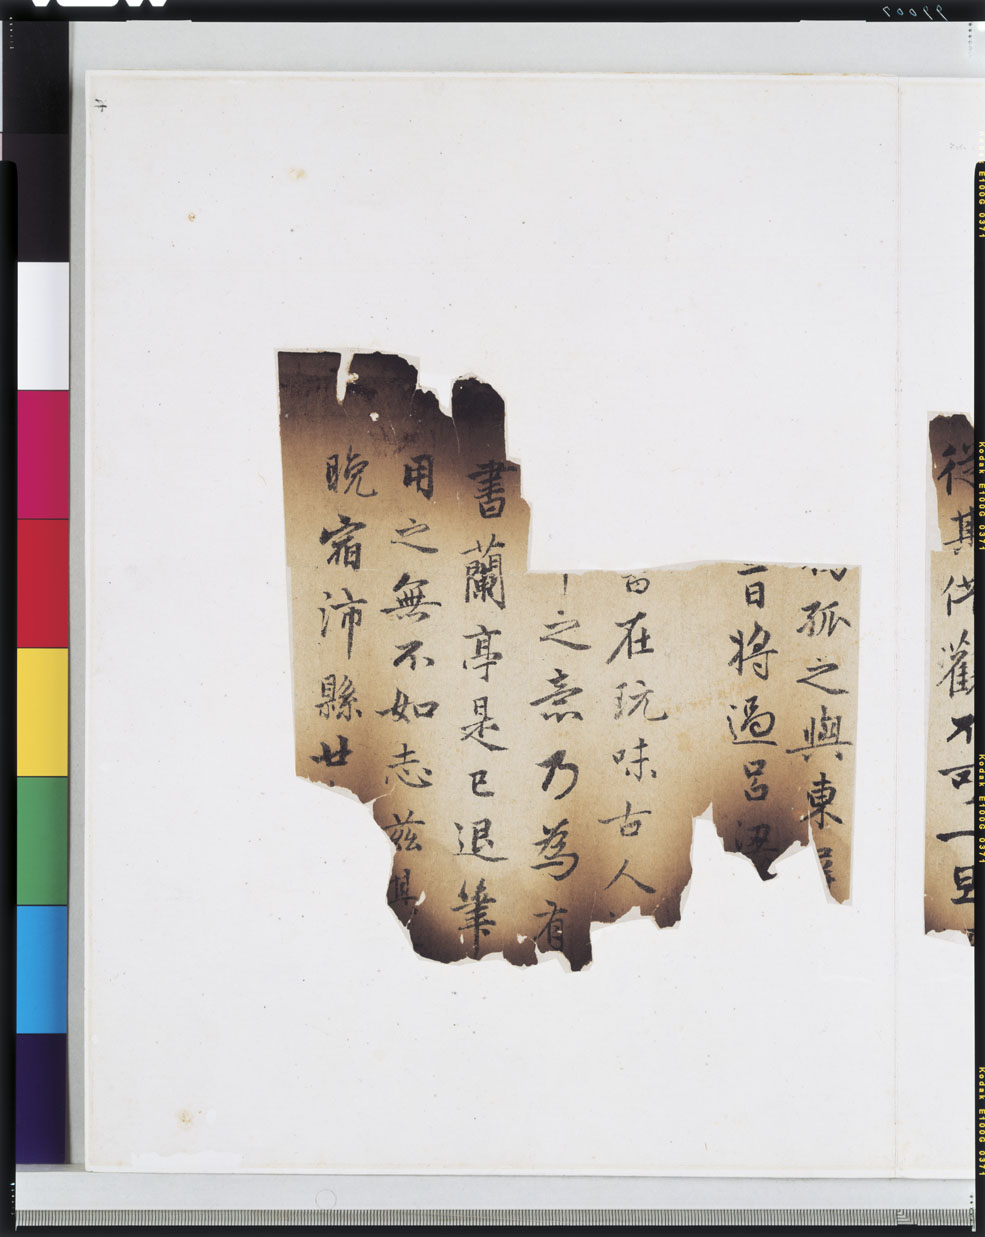 從其借觀不可一旦
孤之與東
日將過呂梁
在玩味古人
之意乃為有
書蘭亭是已退筆
用之無不如志茲其
晚宿沛縣廿
Kodak E100G 0371
Kodak E100G 0371
Kodak E100G 0371